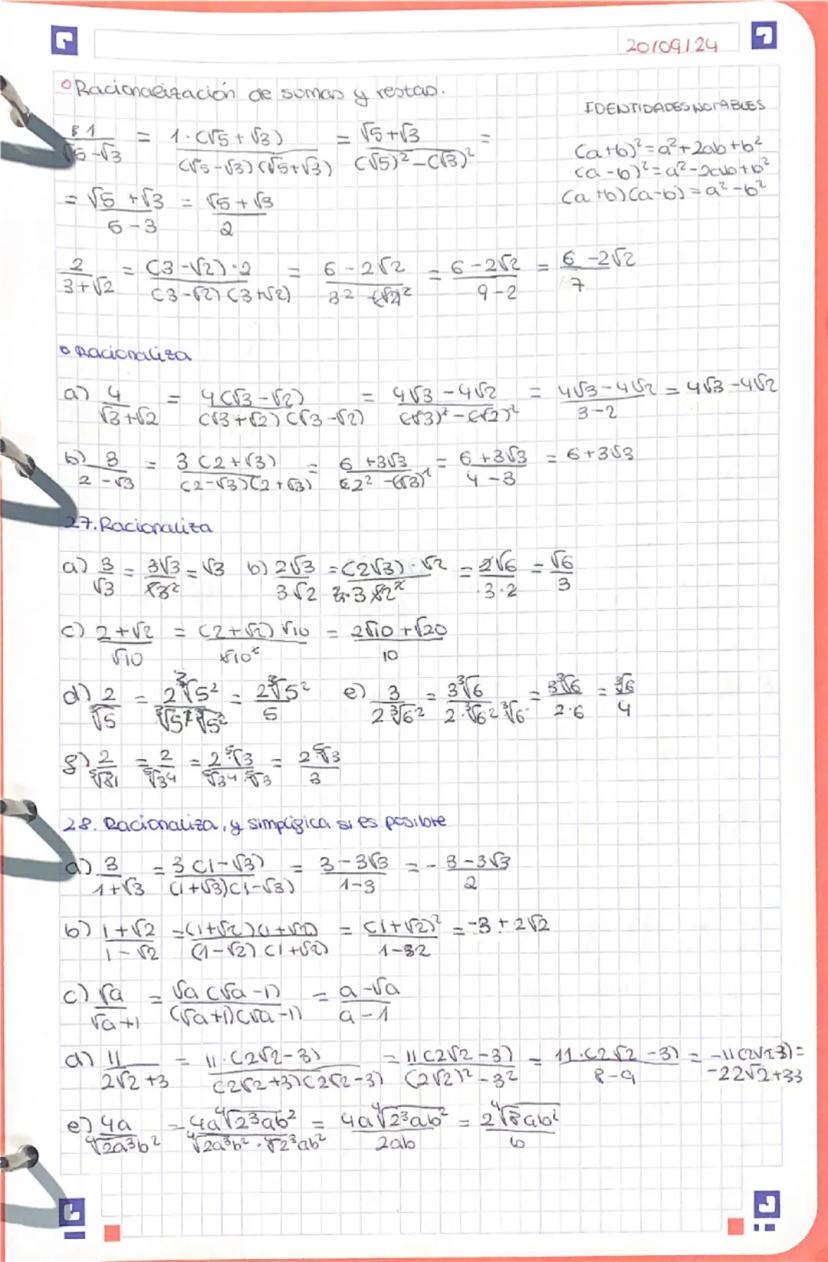 20/09/24
○ Racionalización de sumas y restas.
IDENTIDADES NOTABLES
(a+b)² = a² + 2ab + b²
(a-b)² = a² - 2ab + b²
(a+b)(a-b) = a² - b²
1/(√5-√3) = 1·(√5+√3)/((√5-√3)(√5+√3)) = (√5+√3)/((√5)²-(√3)²) =
= (√5+√3)/(5-3) = (√5+√3)/2
2/(3+√2) = (3-√2)·2/((3-√2)(3+√2)) = (6-2√2)/(3²-(√2)²) = (6-2√2)/(9-2) = (6-2√2)/7
○ Racionaliza
a) 4/(√3+√2) = 4(√3-√2)/((√3+√2)(√3-√2)) = (4√3-4√2)/((√3)²-(√2)²) = (4√3-4√2)/(3-2) = 4√3-4√2
b) 3/(2-√3) = 3(2+√3)/((2-√3)(2+√3)) = (6+3√3)/(2²-(√3)²) = (6+3√3)/(4-3) = 6+3√3
27. Racionaliza
a) 3/√3 = 3√3/√3² = √3 b) 2√3/(3√2) = (2√3)·√2/(3√2²) = 2√6/(3·2) = √6/3
c) (2+√2)/√10 = (2+√2)√10/√10² = (2√10+√20)/10
d) 2/∛5 = 2∛5²/(∛5·∛5²) = 2∛5²/5 e) 3/(2∛6²) = 3∛6/(2·∛6²·∛6) = 3∛6/(2·6) = ∛6/4
f) 2/⁵√81 = 2/⁵√3⁴ = 2⁵√3/(⁵√3⁴·⁵√3) = 2⁵√3/3
28. Racionaliza, y simplifica si es posible
a) 3/(1+√3) = 3(1-√3)/((1+√3)(1-√3)) = (3-3√3)/(1-3) = -(3-3√3)/2
b) (1+√2)/(1-√2) = (1+√2)(1+√2)/((1-√2)(1+√2)) = (1+√2)²/(1-2) = -3+2√2
c) √a/(√a+1) = √a(√a-1)/((√a+1)(√a-1)) = (a-√a)/(a-1)
d) 11/(2√2+3) = 11·(2√2-3)/((2√2+3)(2√2-3)) = 11(2√2-3)/((2√2)²-3²) = 11·(2√2-3)/(8-9) = -11(2√2-3) =
-22√2+33
e) 4a/⁴√(2a³b²) = 4a⁴√(2³ab²)/(⁴√(2a³b²)·⁴√(2³ab²)) = 4a⁴√(2³ab²)/(2ab) = 2⁴√(8ab²)/b